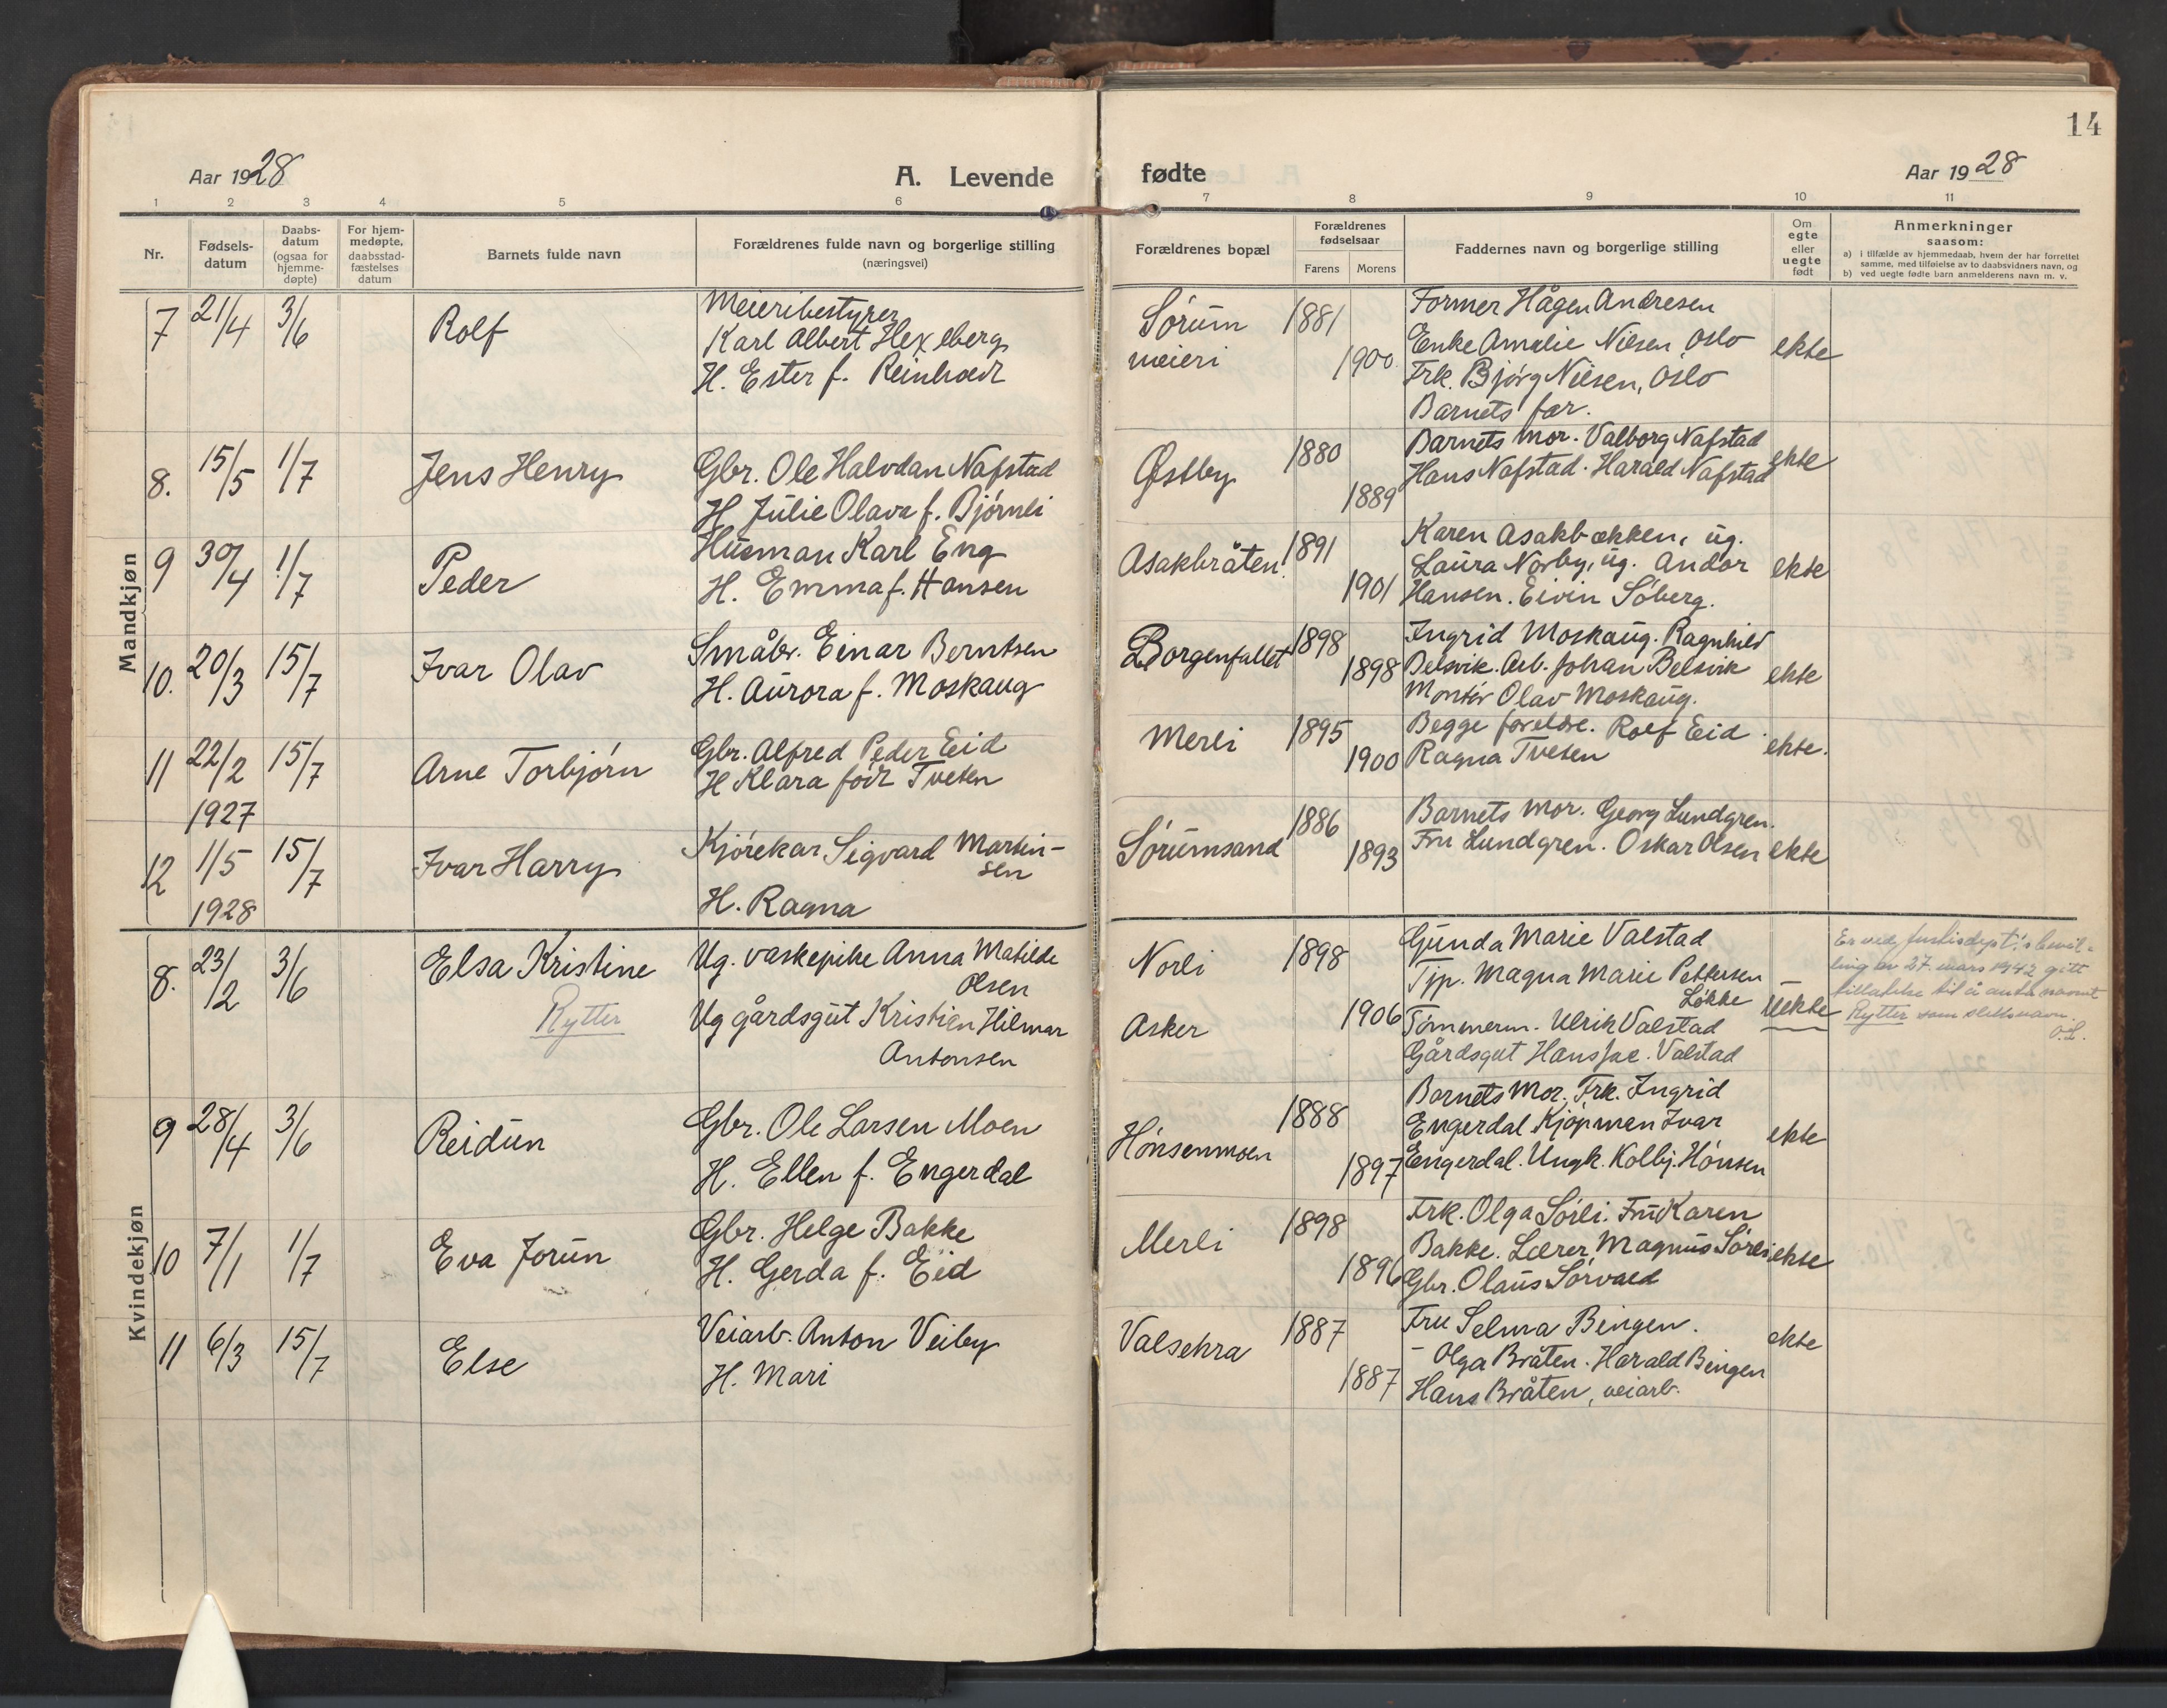 14
Aar 1928
A. Levende
fødte
Aar 1928
1 2 3 4 5 6 7 8 9 10 11
Nr.
Fødsels-
datum
Daabs-
datum
(ogsaa for
hjemme-
døpte)
For hjem-
medøpte,
daabsstad-
fæstelses
datum
Barnets fulde navn
Forældrenes fulde navn og borgerlige stilling
(næringsvei)
Forældrenes bopæl
Forældrenes
fødselsaar
Farens Morens
Faddernes navn og borgerlige stilling
Om
egte
eller
uegte
født
Anmerkninger
saasom:
a) i tilfælde av hjemmedaab, hvem der har forrettet
samme, med tilføielse av to daabsvidners navn, og
b) ved uegte fødte barn anmelderens navn m. v.
Mandkjøn
7 21/4 3/6 Rolf
Meieribestyrer
Karl Albert Hexeberg
H. Ester f. Reinhardt
Sørum
meieri
1881
1900
Former Hågen Andresen
Enke Amalie Nilsen, Oslo
Frk. Bjørg Nilsen, Oslo
Barnets far.
ekte
8. 15/5 1/7 Jens Henry
Gbr. Ole Halvdan Nafstad
H. Julie Olava f. Bjørnli
Østby
1880
1889
Barnets mor. Valborg Nafstad
Hans Nafstad. Harald Nafstad
ekte
9 30/4 1/7 Peder
Husman Karl Eng
H. Emma f. Hansen
Asakbråten.
1891
1901
Karen Asakbækken, ug.
Laura Norby, ug. Andor
Hansen. Eivin Søberg.
ekte
10. 20/3 15/7 Ivar Olav
Småbr. Einar Berntsen
H. Aurora f. Moskaug
Borgenfallet
1898
1898
Ingrid Moskaug. Ragnhild
Belsvik. Arb. Johan Belsvik
Montør Olav Moskaug.
ekte
11 22/2 15/7 Arne Torbjørn
1927
Gbr. Alfred Peder Eid
H Klara født Tveten
Merli
1895
1900
Begge foreldre. Rolf Eid
Ragna Tveten
ekte.
12 1/5 15/7 Ivar Harry
1928
Kjørekar Sigvard Martin-
sen
H. Ragna
Sørumsand
1886
1893
Barnets mor. Georg Lundgren.
Fru Lundgren. Oskar Olsen
ekte
Kvindekjøn
8. 23/2 3/6 Elsa Kristine
Rytter
Ug. vaskepike Anna Matilde
Olsen
Ug gårdsgut Kristian Hilmar
Antonsen
Norli
Asker
1898
1906
Gunda Marie Valstad
Tjp. Magna Marie Pettersen
Løkke
Tømmerm. Ulrik Valstad
Gårdsgut Hans Jac. Valstad
Uekte
Er ved justisdept.'s bevil-
ling av 27. mars 1942 gitt
tillatelse til å anta navnet
Rytter som slektsnavn.
O.L.
9 28/4 3/6 Reidun
Gbr. Ole Larsen Moen
H. Ellen f. Engerdal
Hønsenmoen
1888
1897
Barnets Mor. Frk. Ingrid
Engerdal Kjøpman Ivar
Engerdal. Ungk. Kolbj. Hønsen
ekte
10 7/1 1/7 Eva Jorun
Gbr. Helge Bakke
H. Gerda f. Eid
Merli
1898
1896
Frk. Olga Sørli. Fru Karen
Bakke. Lærer Magnus Sørli
Gbr. Olaus Sørvald
ekte
11 6/3 15/7 Else
Veiarb. Anton Veiby
H. Mari
Valsehra
1887
1887
Fru Selma Bingen.
- Olga Bråten. Harald Bingen
Hans Bråten, veiarb.
ekte